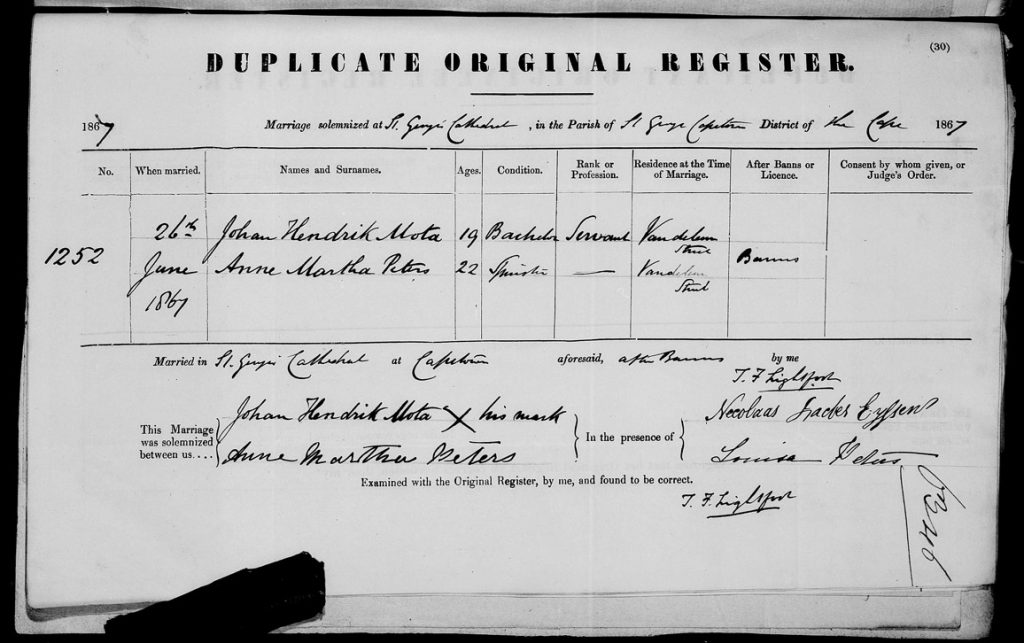 (30)
DUPLICATE ORIGINAL REGISTER.
1867 Marriage solemnized at St. Georges Cathedral, in the Parish of St George Capetown District of the Cape 1867
No. When married. Names and Surnames. Ages. Condition. Rank or Profession. Residence at the Time of Marriage. After Banns or Licence. Consent by whom given, or Judge's Order.
1252
26th June 1867
Johan Hendrik Mota 19 Bachelor Servant Vandeleur Street
Anne Martha Peters 22 Spinster — Vandeleur Street
Banns
Married in St. Georges Cathedral at Capetown aforesaid, after Banns by me
T. F Lightfoot
This Marriage was solemnized between us....
Johan Hendrik Mota X his mark
Anne Martha Peters
In the presence of
Louisa Peters
Examined with the Original Register, by me, and found to be correct.
T. F. Lightfoot